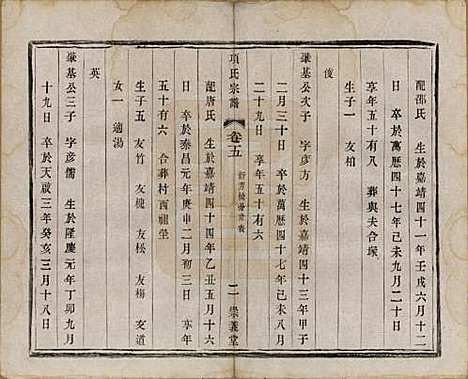 配邵氏 生於嘉靖四十一年壬戌六月十二
日 卒於萬歷四十七年己未九月二十日
享年五十有八 葬與夫合塚
生子一 友柏
俊
肇基公次子 字彥方 生於嘉靖四十三年甲子
二月三十日 卒於萬歷四十七年己未八月
二十九日 享年五十有六
項氏宗譜 卷五 二 崇義堂
配唐氏 生於嘉靖四十四年乙丑五月十六
日 卒於泰昌元年庚申二月初三日 享年
五十有六 合葬村西祖塋
生子五 友竹 友槐 友松 友梅 友道
女一 適湯
英
肇基公三子 字彥儒 生於隆慶元年丁卯九月
十九日 卒於天啟三年癸亥三月十八日